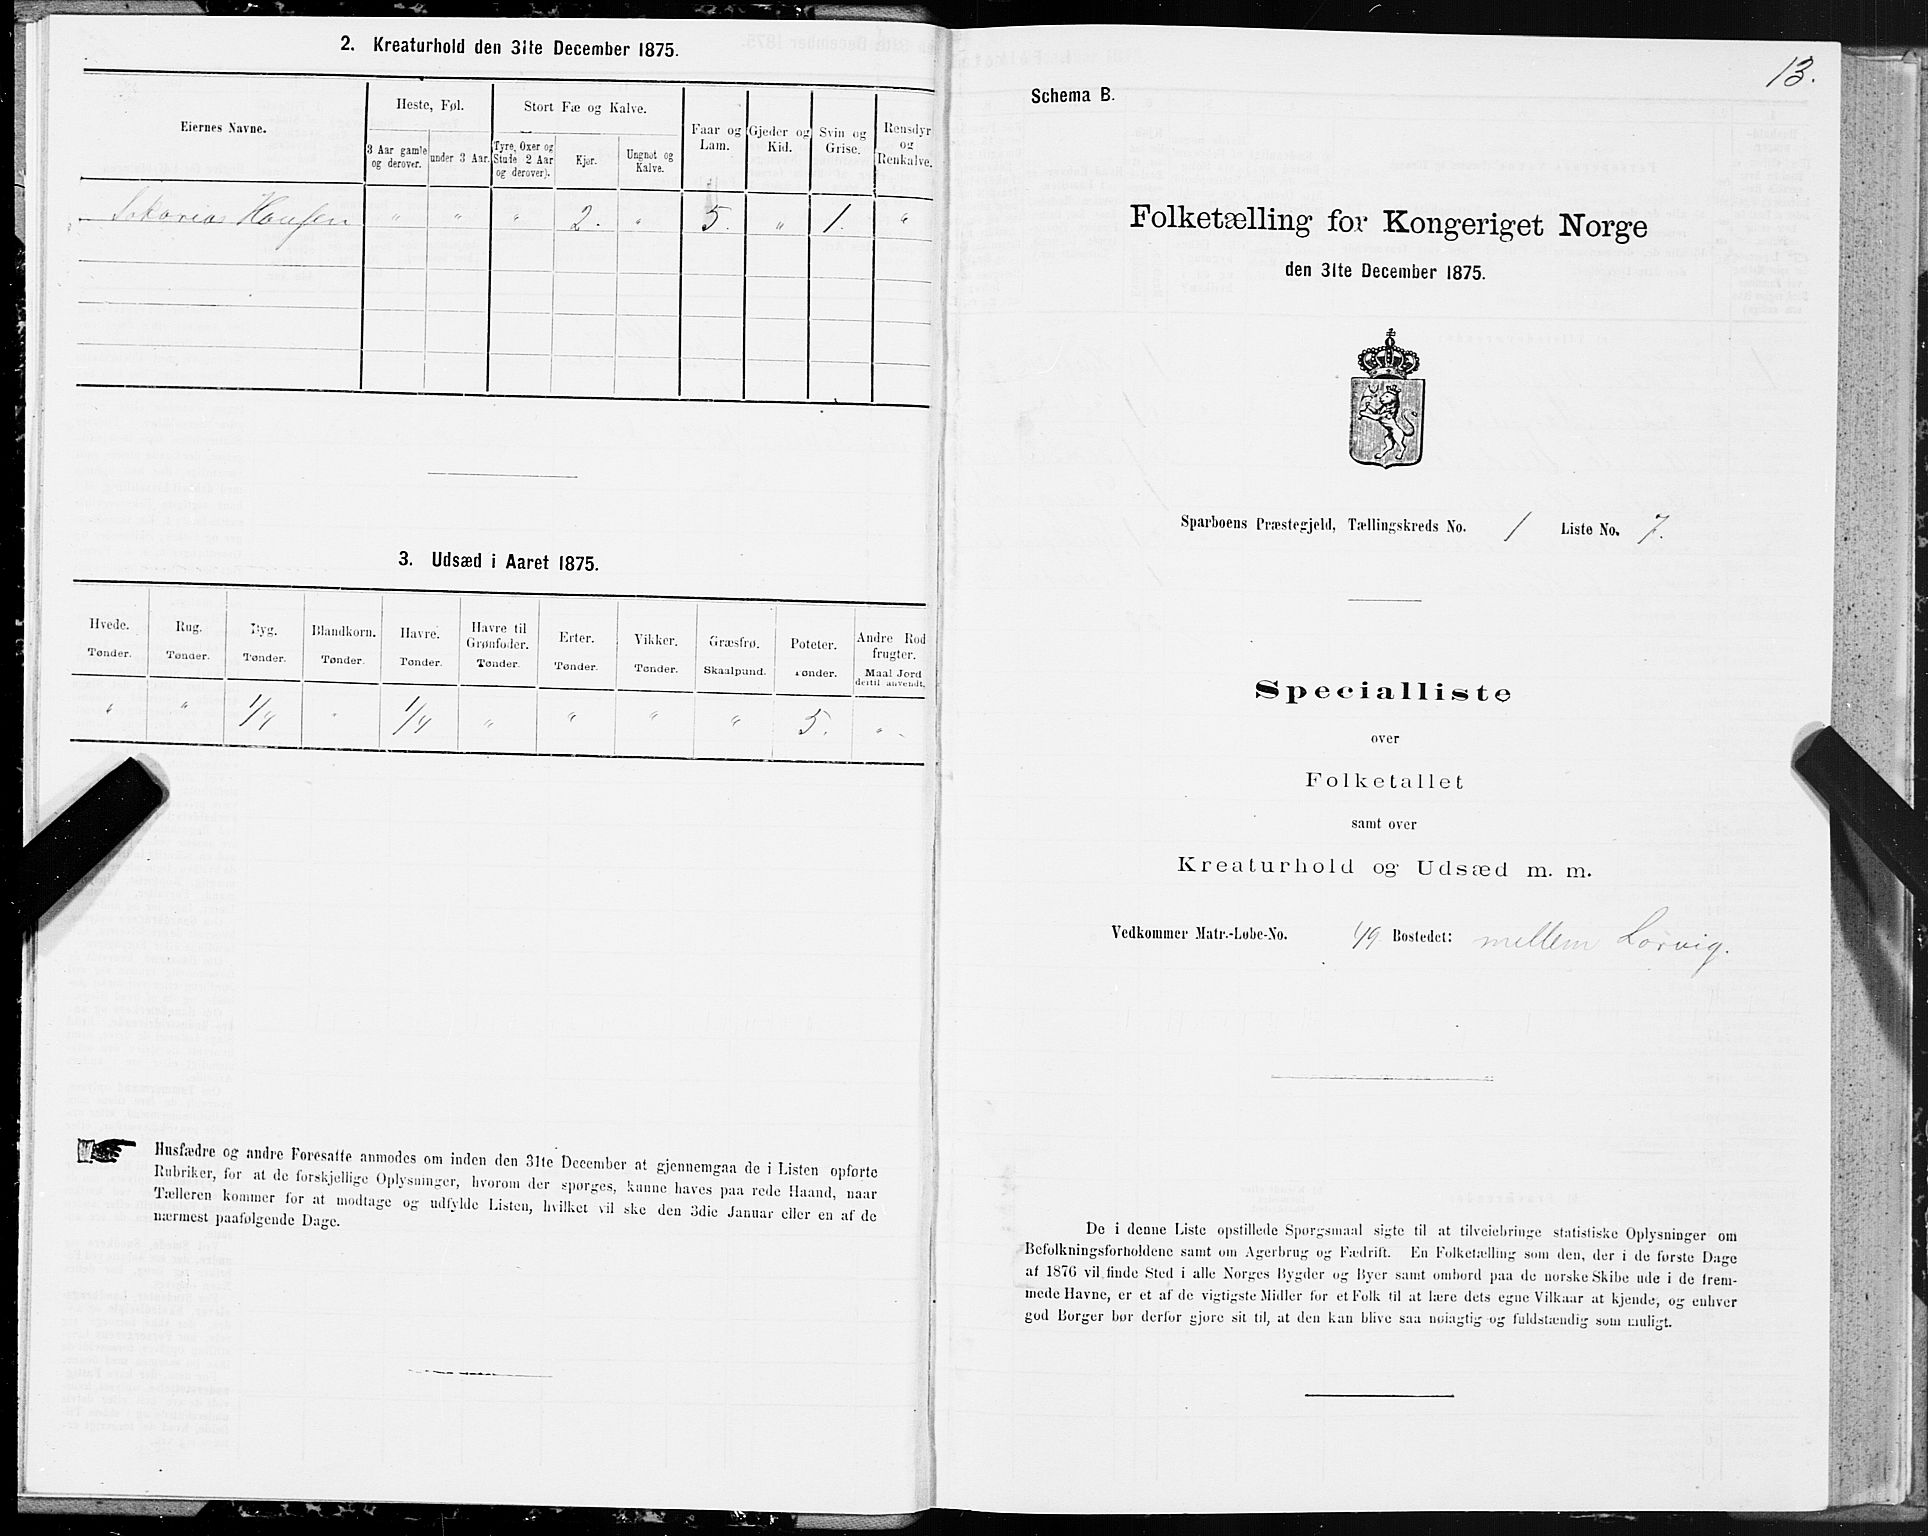 2. Kreaturhold den 31te December 1875.
Eiernes Navne.
Heste, Føl.
Stort Fæ og Kalve.
Faar og Lam.
Gjeder og Kid.
Svin og Grise.
Rensdyr og Renkalve.
3 Aar gamle og derover.
under 3 Aar.
Tyre, Oxer og Stude 2 Aar og derover).
Kjør.
Ungnøt og Kalve.
Hansen " " " 2. " 5. " 1. "
3. Udsæd i Aaret 1875.
Hvede. Rug. Byg. Blandkorn. Havre. Havre til Grønfoder. Erter. Vikker. Græsfrø. Poteter. Andre Rod frugter.
Tønder. Tønder. Tønder. Tønder. Tønder. Tønder. Tønder. Tønder. Skaalpund. Tønder. Maal Jord dertil anvendt.
" " 1/4 " 1/4 " " " " 5. "
Husfædre og andre Foresatte anmodes om inden den 31te December at gjennemgaa de i Listen opførte
Rubriker, for at de forskjellige Oplysninger, hvorom der spørges, kunne haves paa rede Haand, naar
Tælleren kommer for at modtage og udfylde Listen, hvilket vil ske den 3die Januar eller en af de
nærmest paafølgende Dage.
13.
Schema B.
Folketælling for Kongeriget Norge
den 31te December 1875.
Sparboens Præstegjeld, Tællingskreds No. 1 Liste No. 7.
Specialliste
over
Folketallet
samt over
Kreaturhold og Udsæd m. m.
Vedkommer Matr.-Løbe-No. 49 Bostedet: mellem Lorvig.
De i denne Liste opstillede Spørgsmaal sigte til at tilveiebringe statistiske Oplysninger om
Befolkningsforholdene samt om Agerbrug og Fædrift. En Folketælling som den, der i de første Dage
af 1876 vil finde Sted i alle Norges Bygder og Byer samt ombord paa de norske Skibe ude i de frem-
mede Havne, er et af de vigtigste Midler for et Folk til at lære dets egne Vilkaar at kjende, og enhver
god Borger bør derfor gjøre sit til, at den kan blive saa nøiagtig og fuldstændig som muligt.